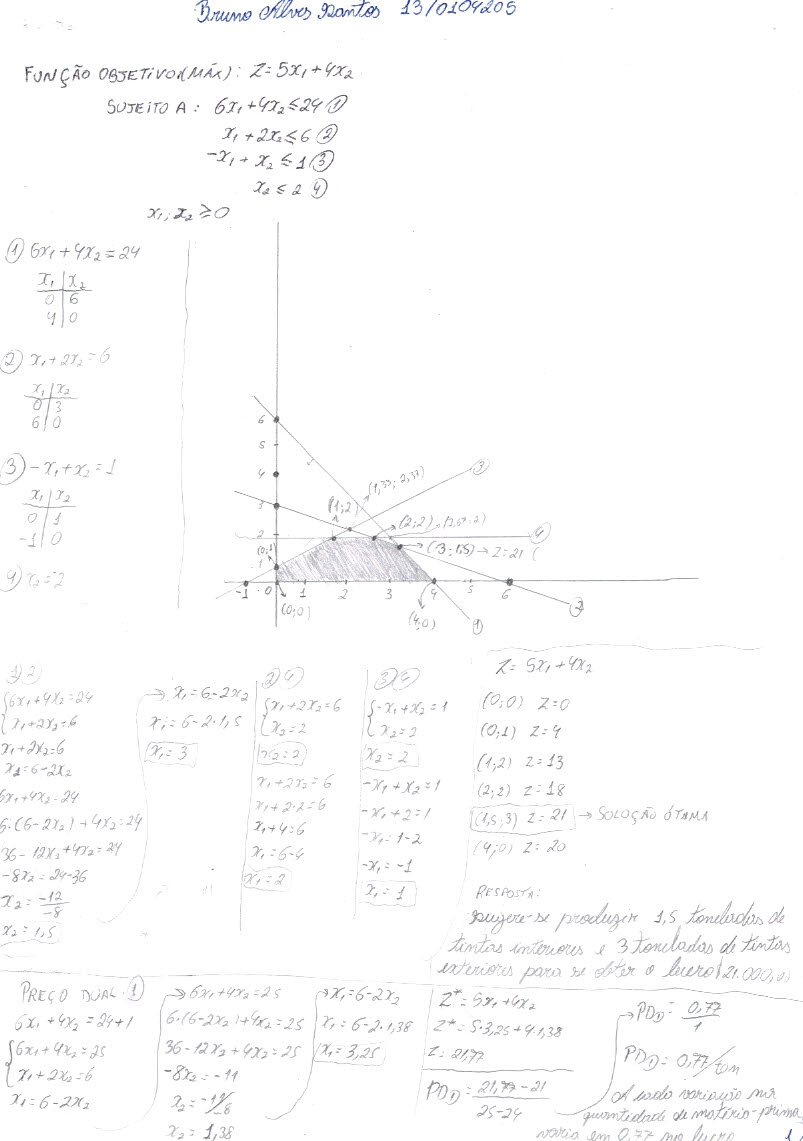 Bruno Alves Santos 13/0104205
FUNÇÃO OBJETIVO(MÁX): Z=5x₁+4x₂
SUJEITO A: 6x₁+4x₂≤24 ①
x₁+2x₂≤6 ②
-x₁+x₂≤1 ③
x₂≤2 ④
x₁;x₂≥0
① 6x₁+4x₂=24
x₁|x₂
0|6
4|0
② x₁+2x₂=6
x₁|x₂
0|3
6|0
③ -x₁+x₂=1
x₁|x₂
0|1
-1|0
④ x₂=2
6
5
4
3
2
1
(1;2)
③
(2;2)
④
(3;1,5)→Z=21
-1 0 1 2 3 4 5 6
(0;0)
(4;0)
①
②
1) 2)
6x₁+4x₂=24
x₁+2x₂=6
x₁+2x₂=6
x₁=6-2x₂
6x₁+4x₂=24
6.(6-2x₂)+4x₂=24
36-12x₂+4x₂=24
-8x₂=24-36
x₂=-12/-8
x₂=1,5
→x₁=6-2x₂
x₁=6-2.1,5
x₁=3
2) 4)
x₁+2x₂=6
x₂=2
x₂=2
x₁+2x₂=6
x₁+2.2=6
x₁+4=6
x₁=6-4
x₁=2
3) 4)
-x₁+x₂=1
x₂=2
x₂=2
-x₁+x₂=1
-x₁+2=1
-x₁=1-2
-x₁=-1
x₁=1
Z=5x₁+4x₂
(0;0) Z=0
(0;1) Z=4
(1;2) Z=13
(2;2) Z=18
(1,5;3) Z=21 → SOLUÇÃO ÓTIMA
(4;0) Z=20
RESPOSTA:
Sugere-se produzir 1,5 toneladas de
tintas interiores e 3 toneladas de tintas
exteriores para se obter o lucro 21.000,00
PREÇO DUAL ①
6x₁+4x₂=24+1
6x₁+4x₂=25
x₁+2x₂=6
x₁=6-2x₂
→6x₁+4x₂=25
6.(6-2x₂)+4x₂=25
36-12x₂+4x₂=25
-8x₂=-11
x₂=-11/-8
x₂=1,38
→x₁=6-2x₂
x₁=6-2.1,38
x₁=3,25
Z*=5x₁+4x₂
Z*=5.3,25+4.1,38
Z=21,77
PD①=21,77-21/25-24
→PD①=0,77/1
PD①=0,77/ton
A cada variação na
quantidade de matéria-prima,
varia em 0,77 no lucro